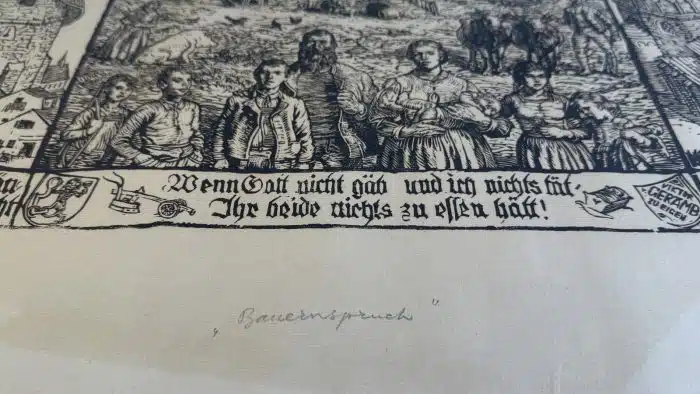 Wenn Gott nicht gäb und ich nichts tät·
Ihr beide nichts zu essen hätt!
GERAMB
ZU EIGEN
„Bauernspruch"